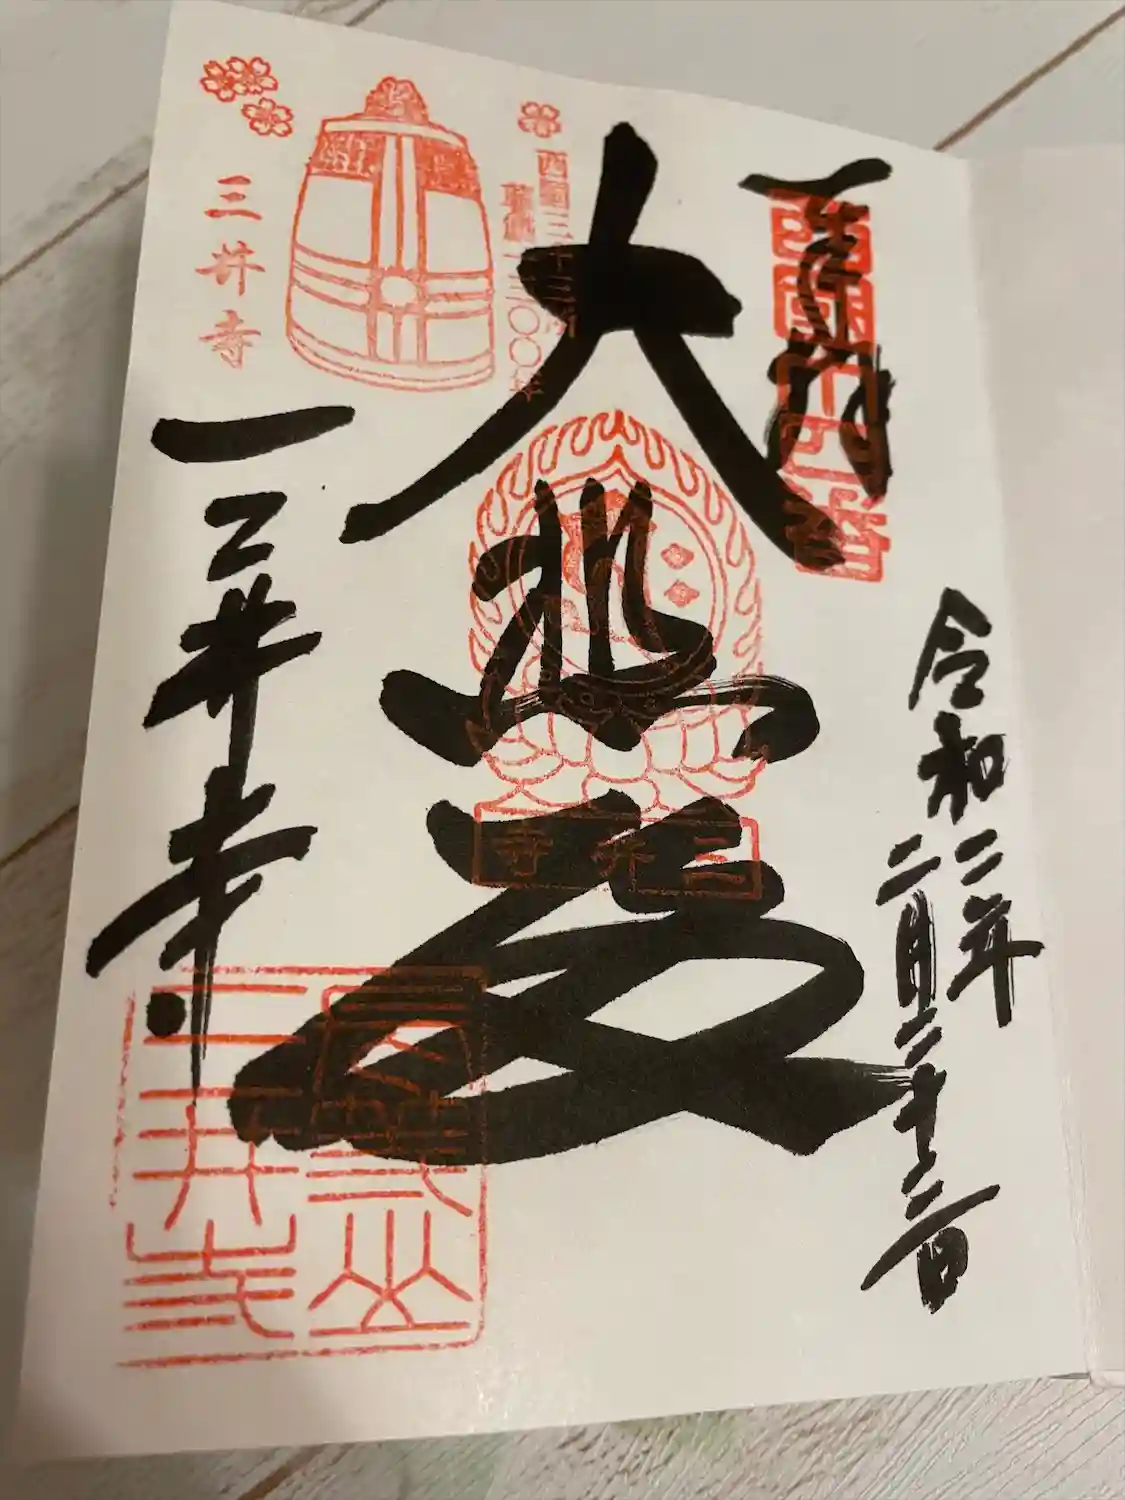 奉拝
西國十四番
令和二年
二月二十二日
大悲殿
三井寺
西国三十三所
草創一三〇〇年
三井寺
三井寺
三井寺